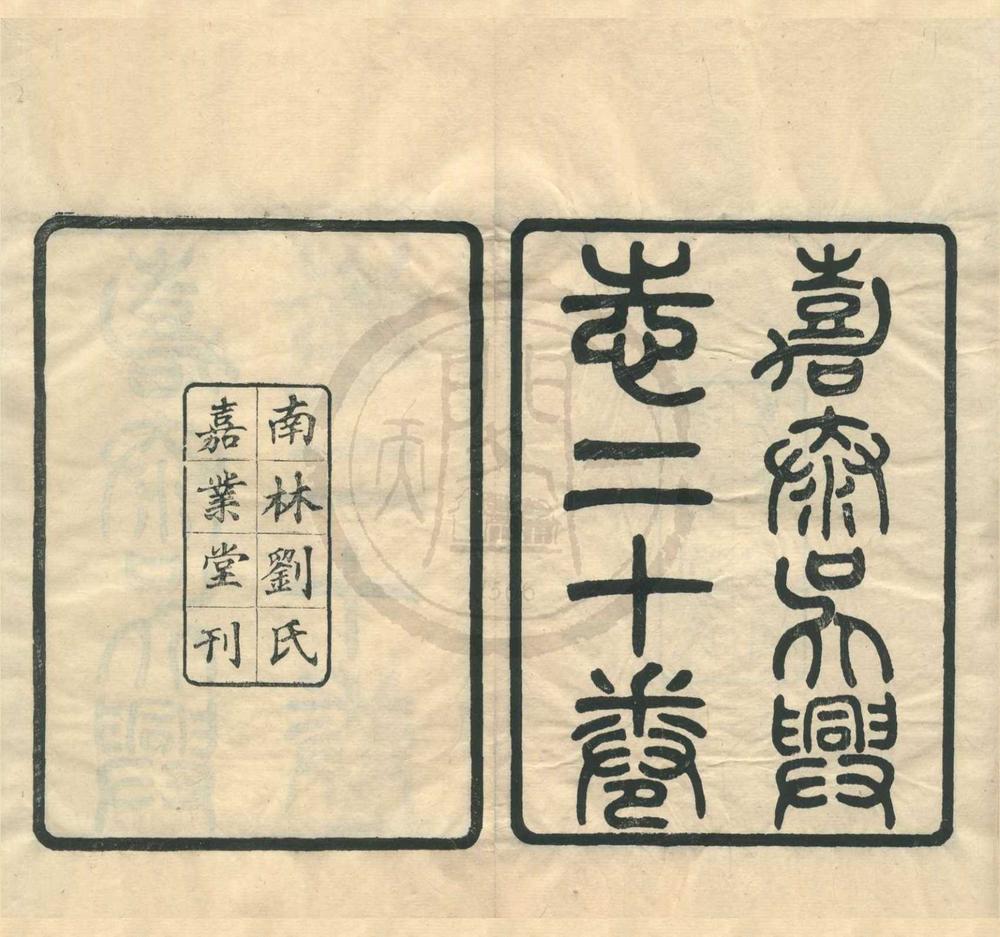 嘉泰吳興
志二十卷
南林劉氏
嘉業堂刊